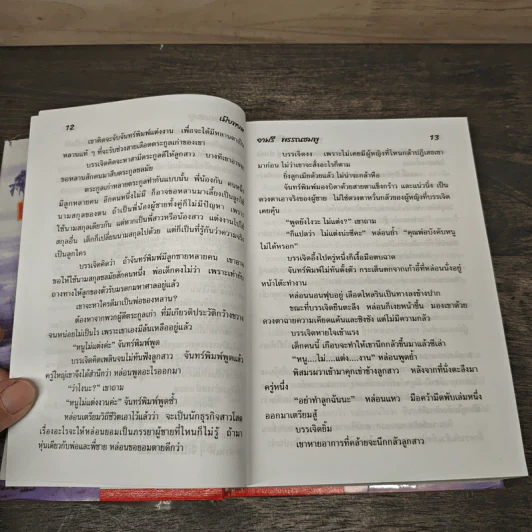 12
เมียหลวง
เขาคิดจะจับจันทร์พิมพ์แต่งงาน เพื่อจะได้มีหลานตาเป็น
หลานแท้ ๆ ที่จะรับช่วงสายเลือดตระกูลเก่าของเขา
บรรเจิดคิดจะหาสามีตระกูลดีให้ลูกสาว บางทีเขาอาจจะ
ขอหลานสักคนมาสืบตระกูลชลมัย
ตระกูลเก่าหลายตระกูลทำกันแบบนั้น พี่น้องกัน คนหนึ่ง
มีลูกหลายคน อีกคนหนึ่งไม่มี ก็อาจขอหลานมาเลี้ยงเป็นลูกใช้
นามสกุลของตน ถ้าเป็นพี่น้องผู้ชายทั้งคู่ก็ไม่มีปัญหา เพราะ
สกุลอื่น เด็กก็เปลี่ยนนามสกุลไปด้วย แต่ก็เป็นที่รู้กันว่าความจริง
เป็นลูกใคร
บรรเจิดคิดว่า ถ้าจันทร์พิมพ์มีลูกชายหลายคน เขาอาจ
ขอให้ใช้นามสกุลชลมัยสักคนหนึ่ง พ่อเด็กคงไม่ว่า เพราะเท่ากับ
ถางทางให้ลูกของตัวรับมรดกมหาศาลอยู่แล้ว
เขาจะหาใครดีมาเป็นพ่อของหลาน?
ต้องหาจากพวกผู้ดีตระกูลเก่า ที่มีเกียรติประวัติกว้างขวาง
จนหน่อยไม่เป็นไร เพราะเขาเองมีล้นเหลืออยู่แล้ว
"หนูไม่แต่งค่ะ" จันทร์พิมพ์พูด
บรรเจิดคิดเพลินจนไม่ทันฟังลูกสาว จันทร์พิมพ์พูดแล้ว
ครู่ใหญ่เขาจึงได้สำนึกว่า หล่อนพูดอะไรออกมา
"ว่าไงนะ?" เขาถาม
"หนูไม่แต่งงานค่ะ" จันทร์พิมพ์พูดซ้ำ
หล่อนเตรียมวิถีชีวิตเอาไว้แล้วว่า จะเป็นนักธุรกิจสาวโสด
เรื่องอะไรจะให้หล่อนยอมเป็นภรรยาผู้ชายที่ไหนก็ไม่รู้ ถ้ามา
หุ่นเดียวกับพ่อและพี่ชาย หล่อนขอยอมตายดีกว่า
จามรี พรรณชมพู
13
บรรเจิดงง เพราะไม่เคยมีผู้หญิงที่ไหนกล้าปฏิเสธเขา
มาก่อน ไม่ว่าเขาจะสั่งอะไรก็ตาม
ยิ่งลูกเมียด้วยแล้ว ไม่น่าจะกล้าหือ
จันทร์พิมพ์มองบิดาด้วยสายตาแข็งกร้าว และแน่วนิ่ง เป็น
ดวงตาเอาจริงของผู้ชาย ไม่ใช่ดวงตาหวั่นกลัวของผู้หญิงที่บรรเจิด
เคยคุ้น
"พูดยังไงวะ ไม่แต่ง?" เขาถาม
"ก็แปลว่า ไม่แต่งน่ะซีคะ" หล่อนย้ำ "คุณพ่อบังคับหนู
ไม่ได้หรอก"
บรรเจิดอึ้งไปครู่หนึ่งก็เงื้อมือตบฉาด
จันทร์พิมพ์ไม่ทันตั้งตัว กระเด็นตกจากเก้าอี้ที่หล่อนนั่งอยู่
หน้าโต๊ะทำงาน
หล่อนนอนฟุบอยู่ เลือดไหลรินเป็นทางลงข้างปาก
ขณะที่บรรเจิดยืนตะลึง หล่อนก็เงยหน้าขึ้น มองเขาด้วย
ดวงตาฉายความเคียดแค้นและชิงชัง แต่ไม่มีความกลัว
บรรเจิดหายใจเข้าแรง
เด็กคนนี้ เกือบจะทำให้เขานึกกลัวขึ้นมาแล้วซีเล่า
"หนู....ไม่....แต่ง....งาน" หล่อนพูดย้ำ
พิสมรผวาเข้ามาคุกเข่าข้างลูกสาว หลังจากที่นั่งตะลึงมา
ครู่หนึ่ง
"อย่าทำลูกฉันนะ" หล่อนแหว มือคว้ามีดพับเล่มหนึ่ง
ออกมาเตรียมสู้
บรรเจิดยิ้ม
เขาหายอาการที่คล้ายจะนึกกลัวลูกสาว